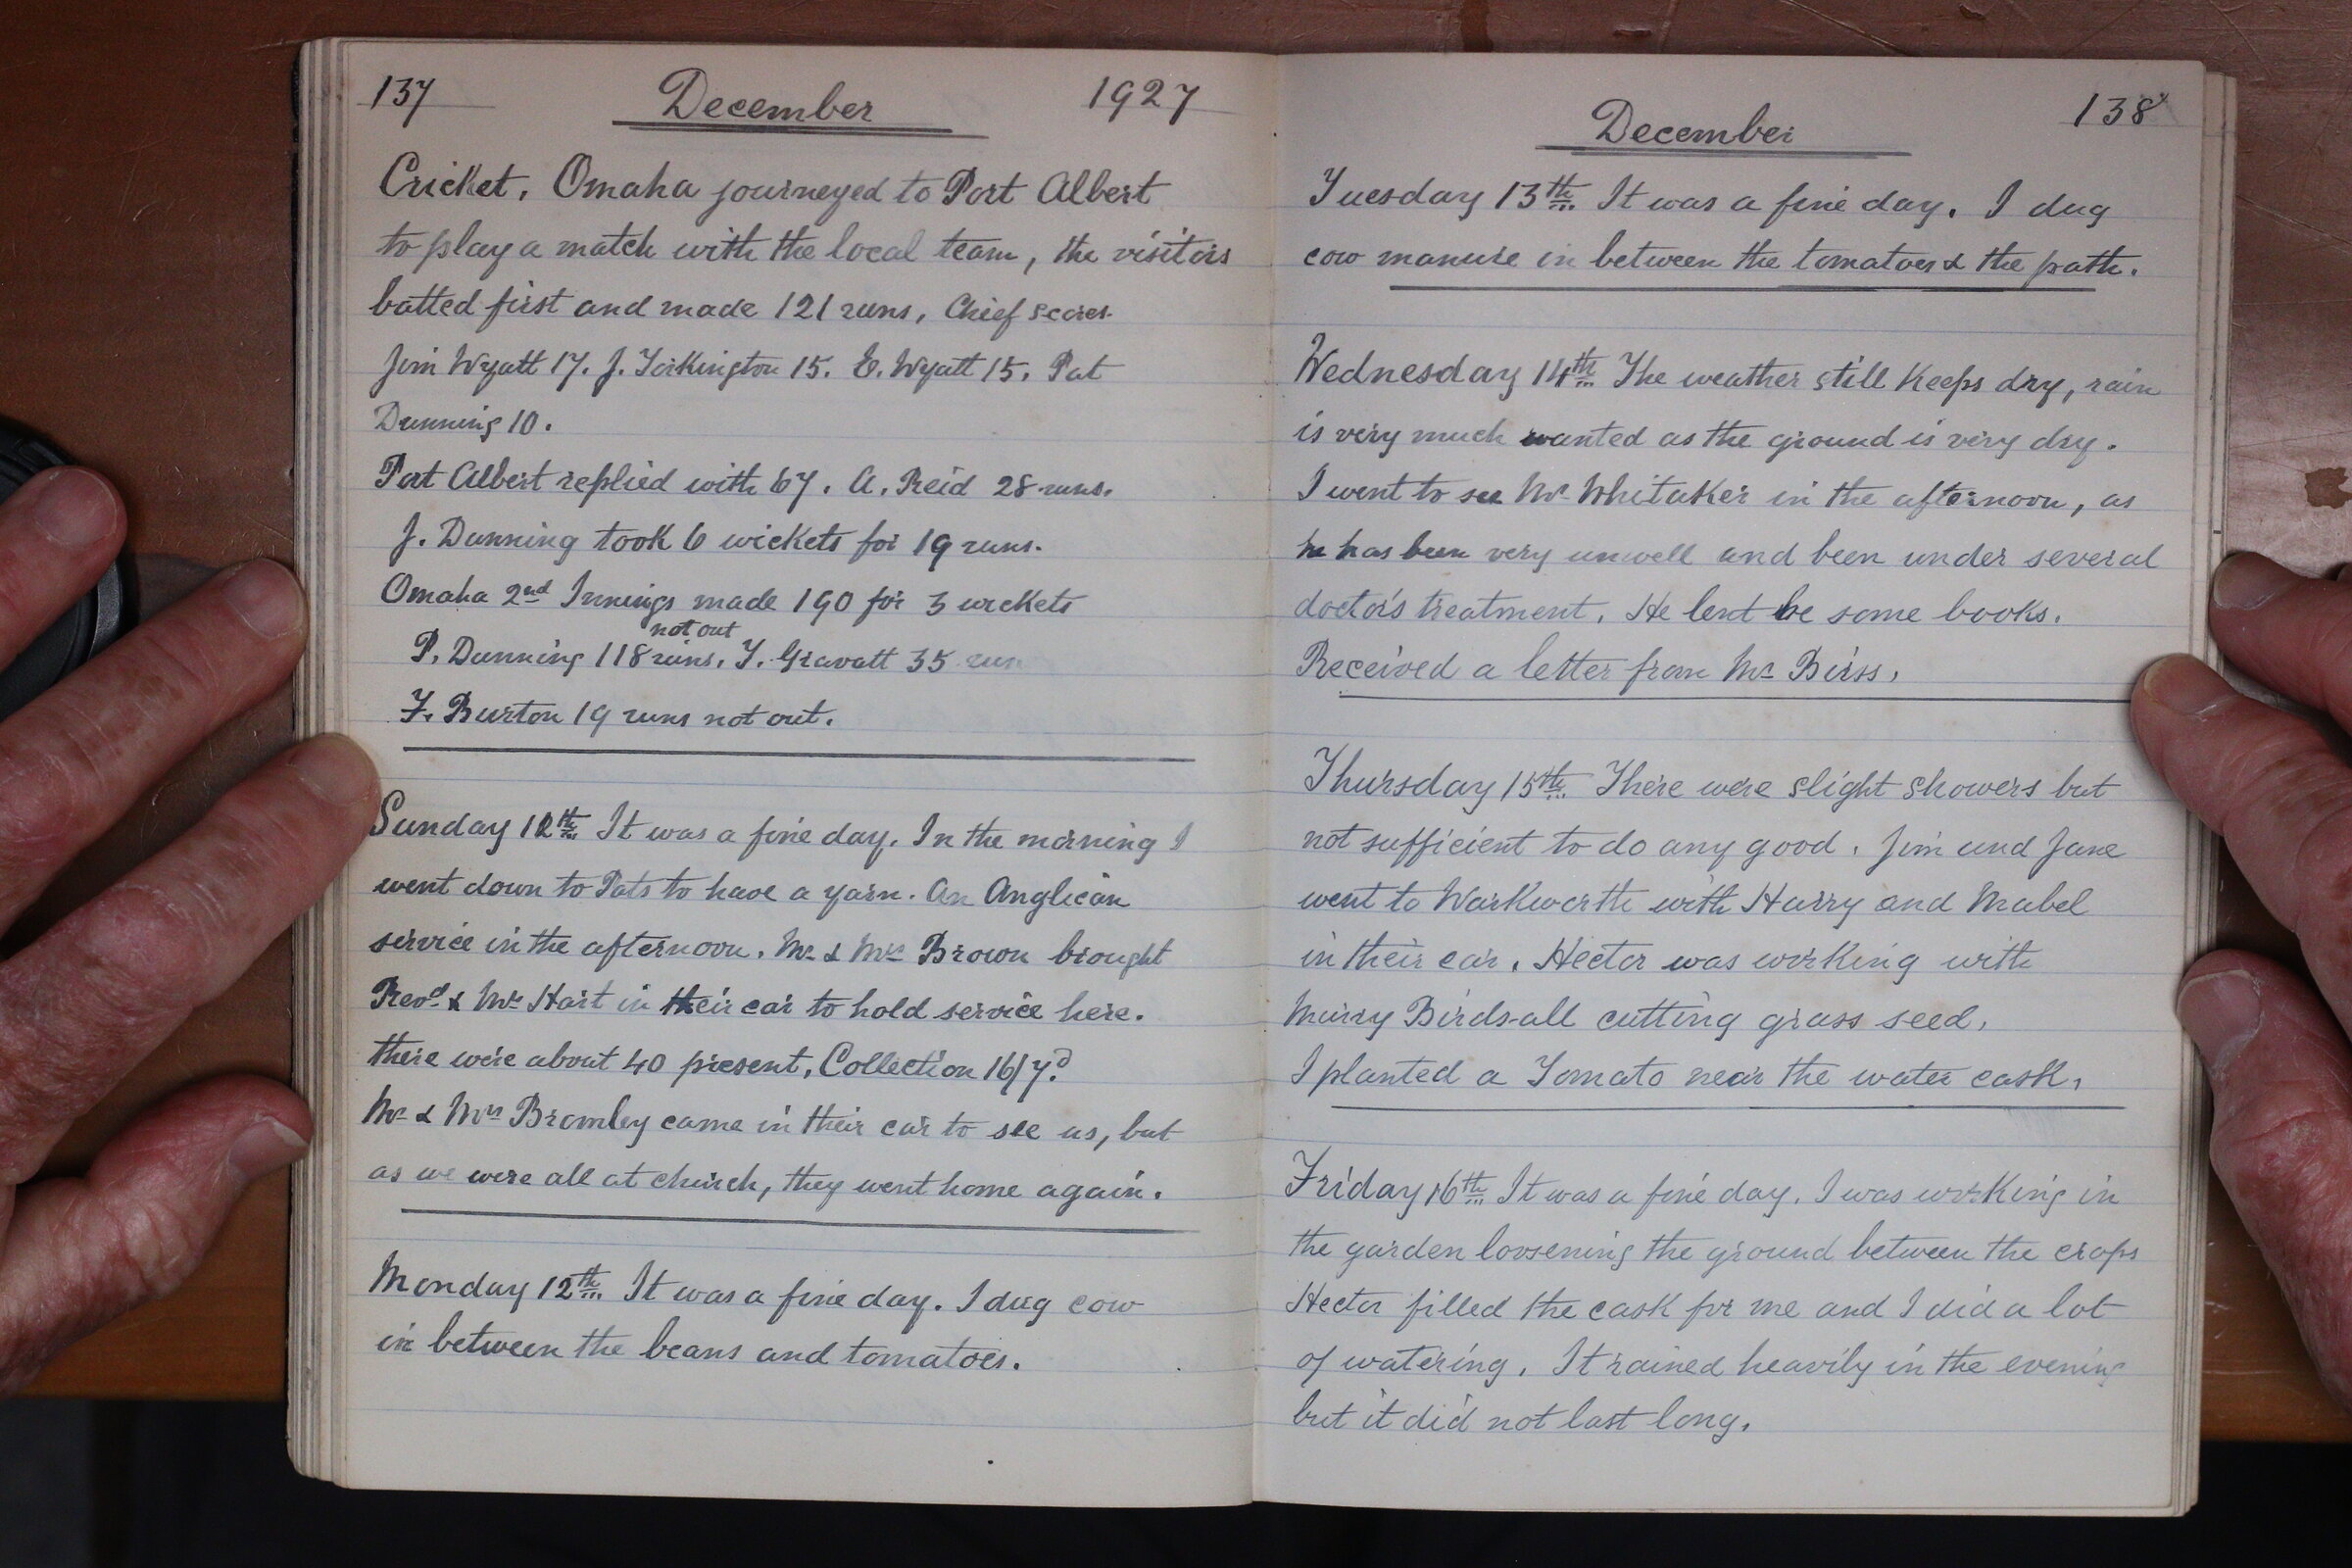 137 December 1927
Cricket, Omaha journeyed to Port Albert
to play a match with the local team, the visitors
batted first and made 121 runs, Chief scores.
Jim Wyatt 17. J. Torkington 15. E. Wyatt 15. Pat
Dunning 10.
Port Albert replied with 67. A. Reid 28 runs.
J. Dunning took 6 wickets for 19 runs.
Omaha 2nd Innings made 190 for 3 wickets
not out
P. Dunning 118 runs. T. Gravatt 35 run
F. Burton 19 runs not out.
Sunday 12th It was a fine day. In the morning I
went down to Pats to have a yarn. An Anglican
service in the afternoon. Mr & Mrs Brown brought
Revd & Mrs Hart in their car to hold service here.
there were about 40 present, Collection 16/7d
Mr & Mrs Bromley came in their car to see us, but
as we were all at church, they went home again.
Monday 12th It was a fine day. I dug cow
in between the beans and tomatoes.
December 138
Tuesday 13th It was a fine day. I dug
cow manure in between the tomatoes & the path.
Wednesday 14th The weather still keeps dry, rain
is very much wanted as the ground is very dry.
I went to see Mr Whitaker in the afternoon, as
he has been very unwell and been under several
doctors treatment. He lent be some books.
Received a letter from Mr Birss.
Thursday 15th There were slight showers but
not sufficient to do any good. Jim and Jane
went to Warkworth with Harry and Mabel
in their car. Hector was working with
Murry Birds-all cutting grass seed.
I planted a Tomato near the water cask.
Friday 16th It was a fine day. I was working in
the garden loosening the ground between the crops
Hector filled the cask for me and I did a lot
of watering. It rained heavily in the evening
but it did not last long.